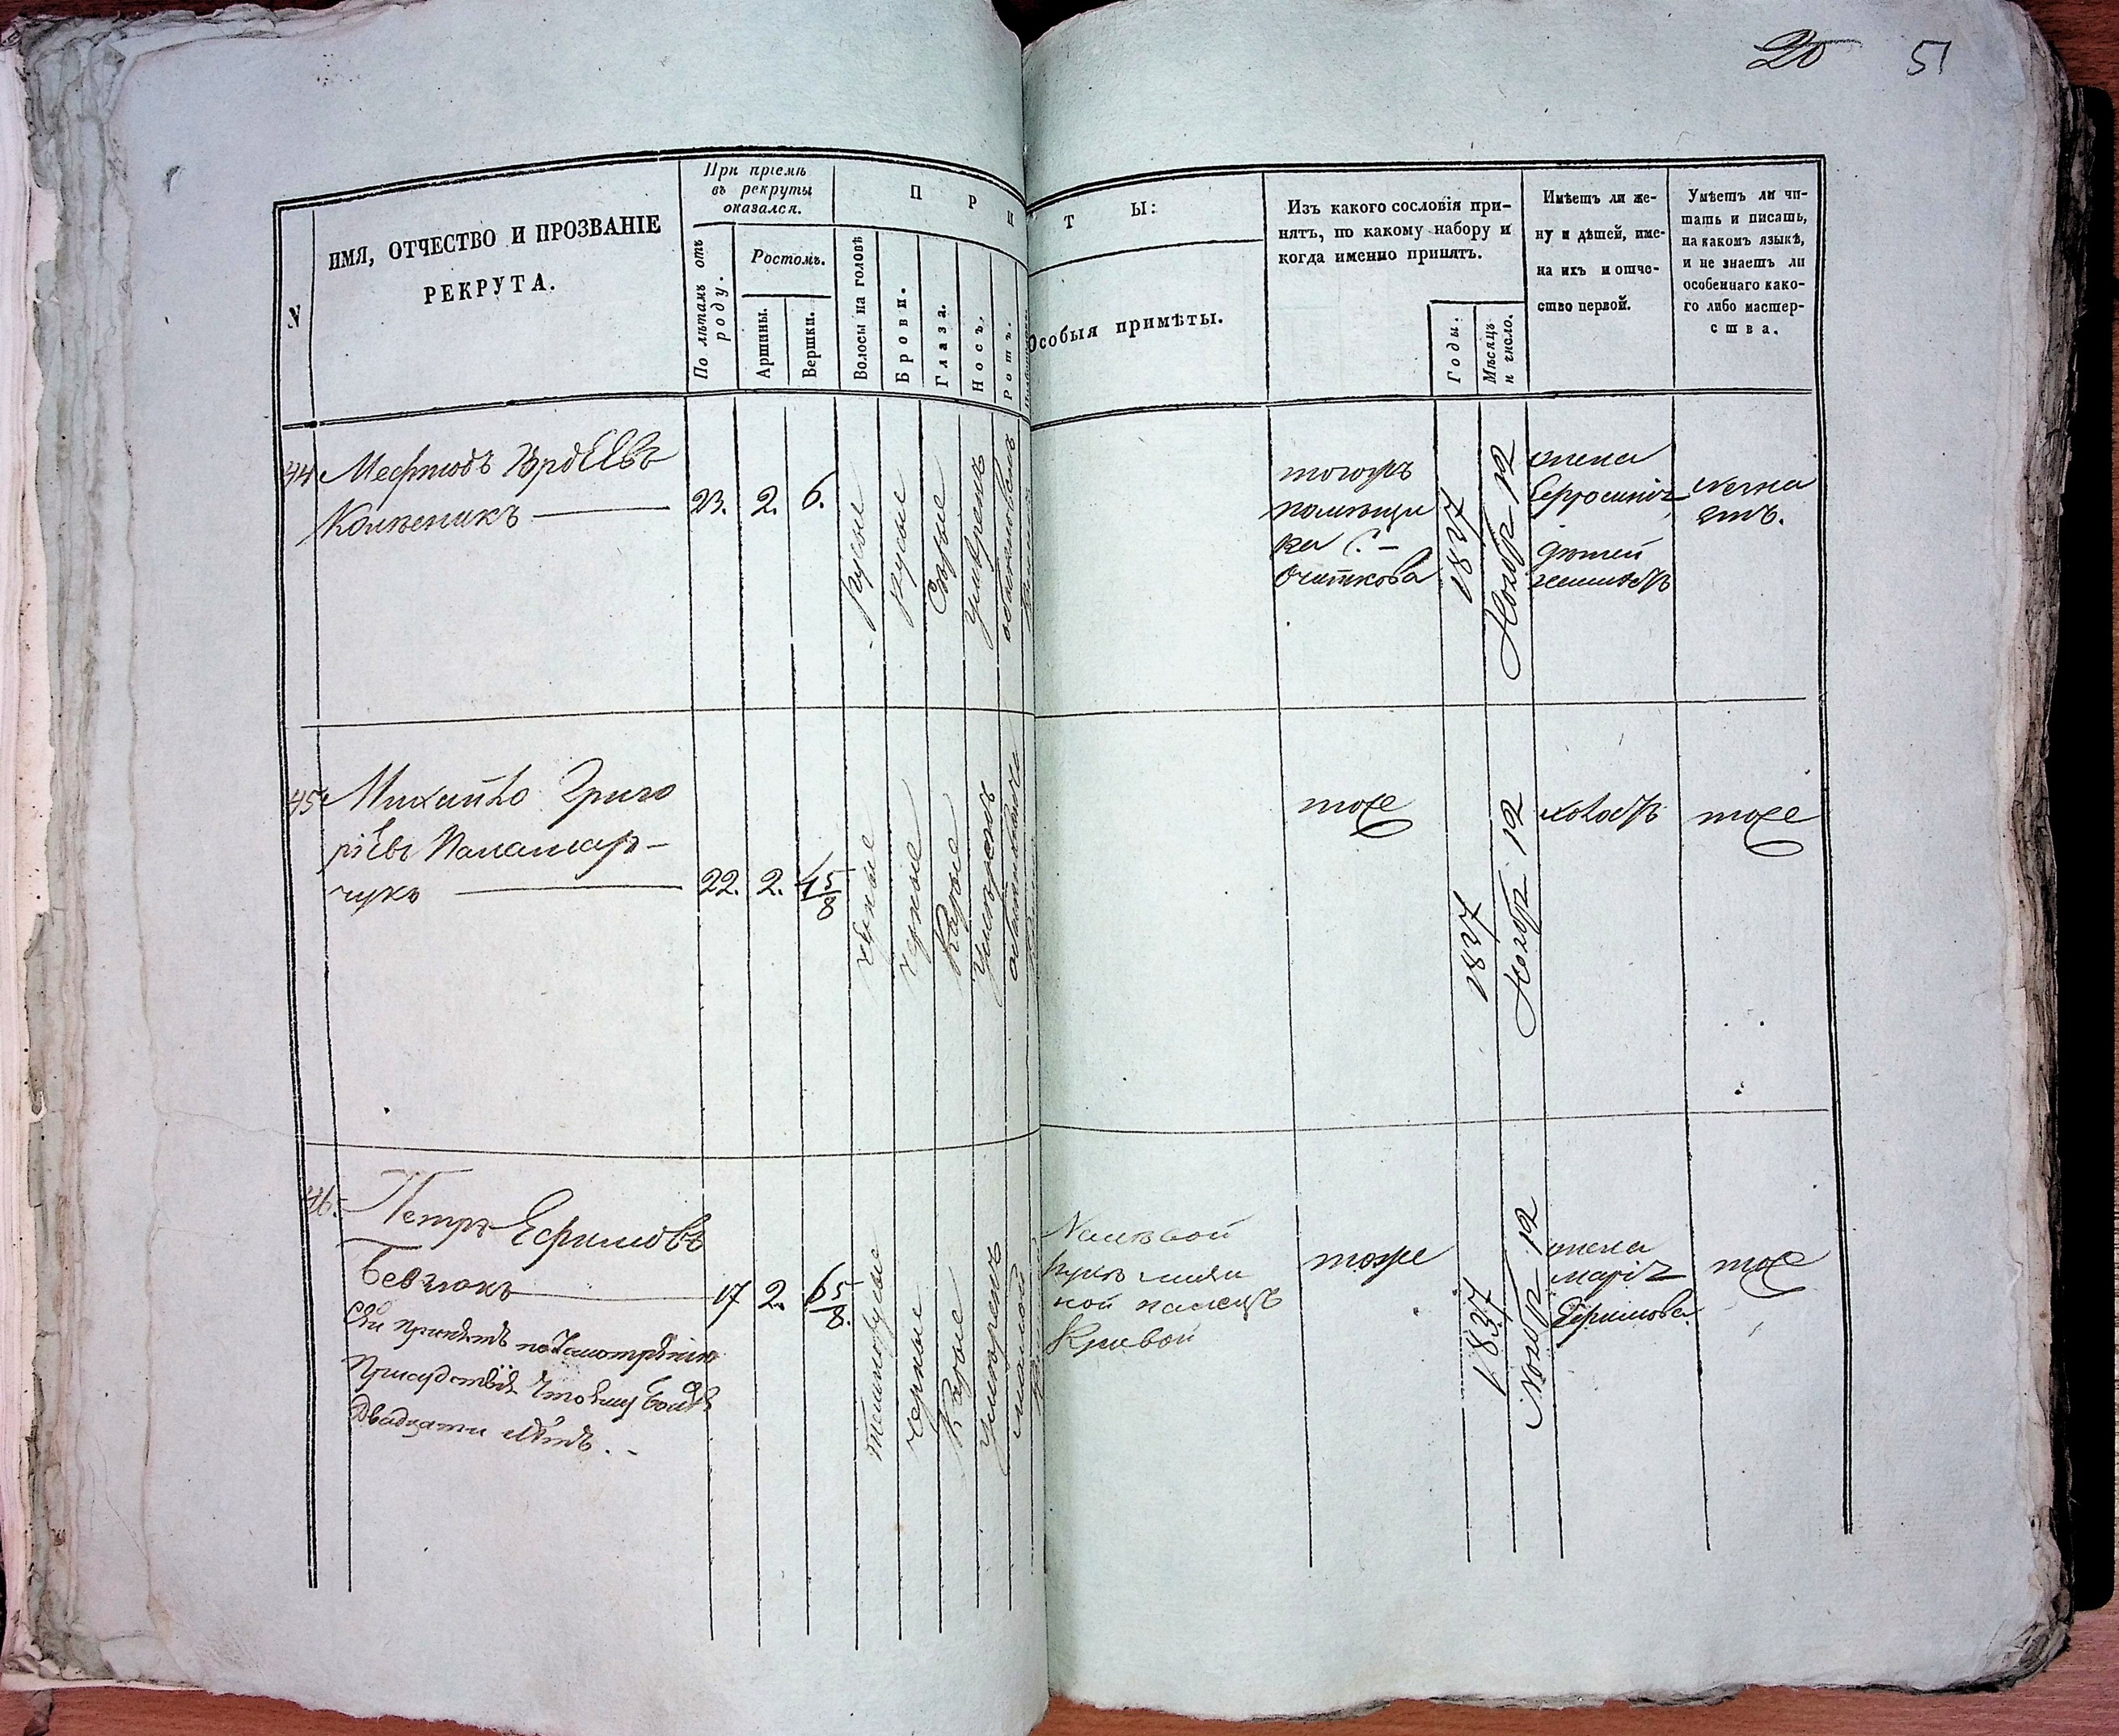 20 51
N
ИМЯ, ОТЧЕСТВО И ПРОЗВАНІЕ
РЕКРУТА.
При пріемѣ
въ рекруты
оказался.
По лѣтамъ отъ
роду.
Ростомъ.
Аршины.
Вершки.
П Р И
Т Ы:
Волосы на головѣ
Брови.
Глаза.
Носъ.
Ротъ.
Особыя примѣты.
Изъ какого сословія при-
нятъ, по какому набору и
когда именно принятъ.
Годы.
Мѣсяцъ
и число.
Имѣетъ ли же-
ну и дѣтей, име-
на ихъ и отче-
ство первой.
Умѣетъ ли чи-
тать и писать,
на какомъ языкѣ,
и не знаетъ ли
особеннаго како-
го либо мастер-
ства.
44
Колѣсникъ
23. 2. 6.
русые
русые
Сѣрые
умѣренъ
тогожъ
помѣщи
ка
1837
Ноябр 12
жена
Ефросинія
дѣтей
незна
етъ.
45
Михайло Григо
рьевъ Паламар-
чукъ
22. 2. 4 5/8
черные
черные
Карые
умѣренъ
тоже
1837
Ноябр 12
холостъ
тоже
46.
Петръ Ефимовъ
Бевзюкъ
17 2. 6 5/8.
Сей принятъ по усмотрѣнію
Присудствія что ему более
Двадцати лѣтъ. -
темнорусые
черные
Карые
умѣренъ
малой
На левой
руке мизи
ной палецъ
Кривой
тоже
1837
Ноябр 12
жена
марія
Ефимова
тоже